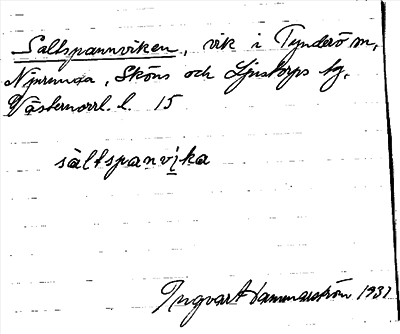 Saltspannviken, vik i Tynderö sn,
Njurunda, Sköns och Ljustorps tg,
Västernorrl. l. 15
sàltspanvi̠ka
Ingvart Hammarström 1937